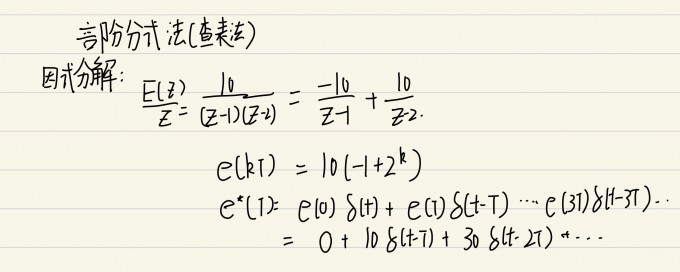 部分分式法(查表法)
因式分解:
E(z)/z = 10/((z-1)(z-2)) = -10/(z-1) + 10/(z-2).
e(kT) = 10(-1+2^k)
e*(T)= e(0)δ(t) + e(T)δ(t-T) ... e(3T)δ(t-3T)...
= 0 + 10δ(t-T) + 30δ(t-2T) + ...